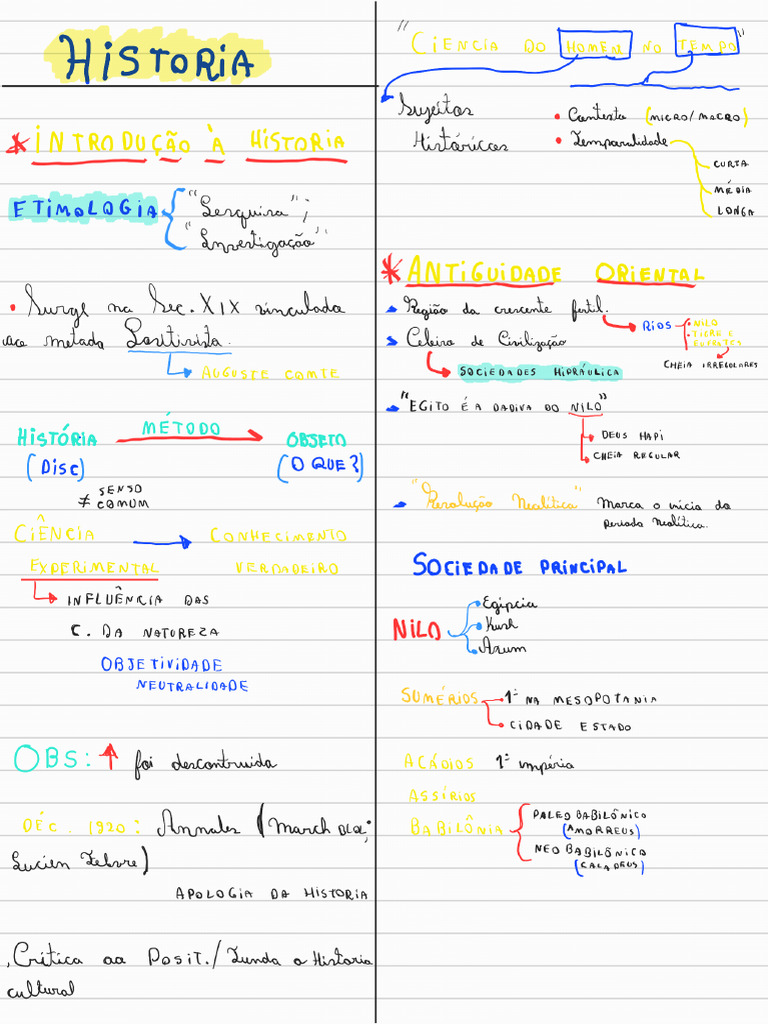 HISTORIA
* INTRODUÇÃO À HISTORIA
ETIMOLOGIA { "Pesquisa";
"Investigação"
• Surge na Sec. XIX vinculada
ao metodo Positivista.
AUGUSTE COMTE
HISTÓRIA MÉTODO OBJETO
(DISC) (O QUE?)
≠ SENSO
COMUM
CIÊNCIA → CONHECIMENTO
EXPERIMENTAL VERDADEIRO
INFLUÊNCIA DAS
C. DA NATUREZA
OBJETIVIDADE
NEUTRALIDADE
OBS: ↑ foi desconstruida
DÉC. 1920: Annales (March Bloc;
Lucien Febvre)
APOLOGIA DA HISTORIA
. Crítica ao POSIT./Funda a Historia
cultural
"CIENCIA DO HOMEM NO TEMPO"
Sujeitos
Históricos
• Contexto (MICRO/MACRO)
• Temporalidade
CURTA
MÉDIA
LONGA
* ANTIGUIDADE ORIENTAL
Região da crescente fertil.
RIOS
• NILO
• TIGRE E
EUFRATES
CHEIA IRREGULARES
Celeiro de Civilização
SOCIEDADES HIDRÁULICA
"EGITO É A DADIVA DO NILO"
DEUS HAPI
CHEIA REGULAR
"Revolução Neolítica" Marca o inicio do
periodo Neolítico.
SOCIEDADE PRINCIPAL
NILO
Egipcia
Kush
Axum
SUMÉRIOS
1ª NA MESOPOTANIA
CIDADE ESTADO
ACÁDIOS 1º império
ASSÍRIOS
BABILÔNIA
PALEO BABILÔNICO
(AMORREUS)
NEO BABILÔNICO
(CALADEUS)